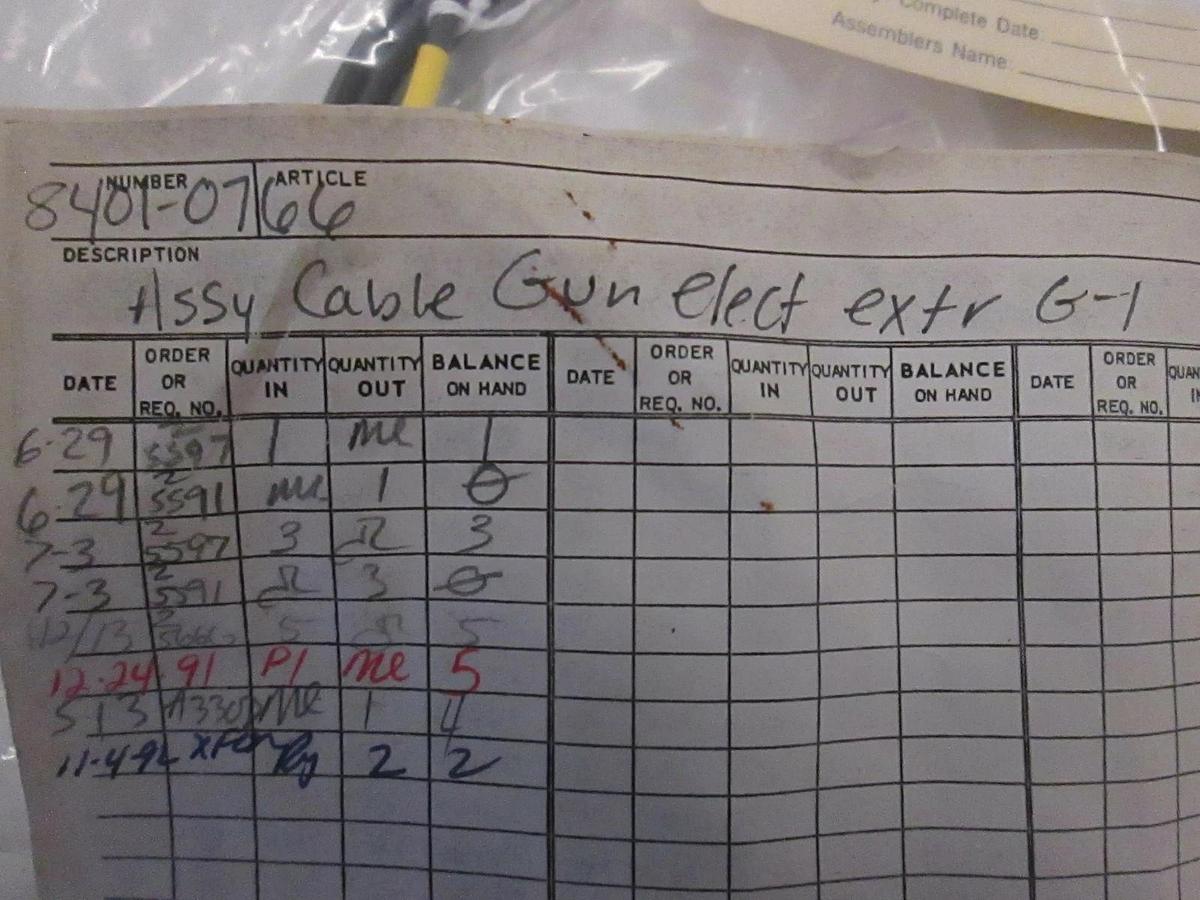 Complete Date
Assemblers Name:
NUMBER ARTICLE
8401-0766
DESCRIPTION
Assy Cable Gun elect extr G-1
DATE ORDER OR REQ. NO. QUANTITY IN QUANTITY OUT BALANCE ON HAND DATE ORDER OR REQ. NO. QUANTITY IN QUANTITY OUT BALANCE ON HAND DATE ORDER OR REQ. NO.
6-29 2 5597 1 me 1
6-29 2 5591 me 1 0
7-3 2 5597 3 3
7-3 2 5591 3 0
12/13 2 5 5
12-24-91 PI me 5
5 13 me 1 4
11-4-92 2 2